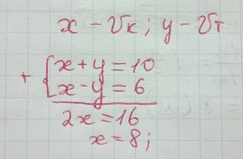 x - Vк; y - Vт
+ { x + y = 10
x - y = 6
2x = 16
x = 8;